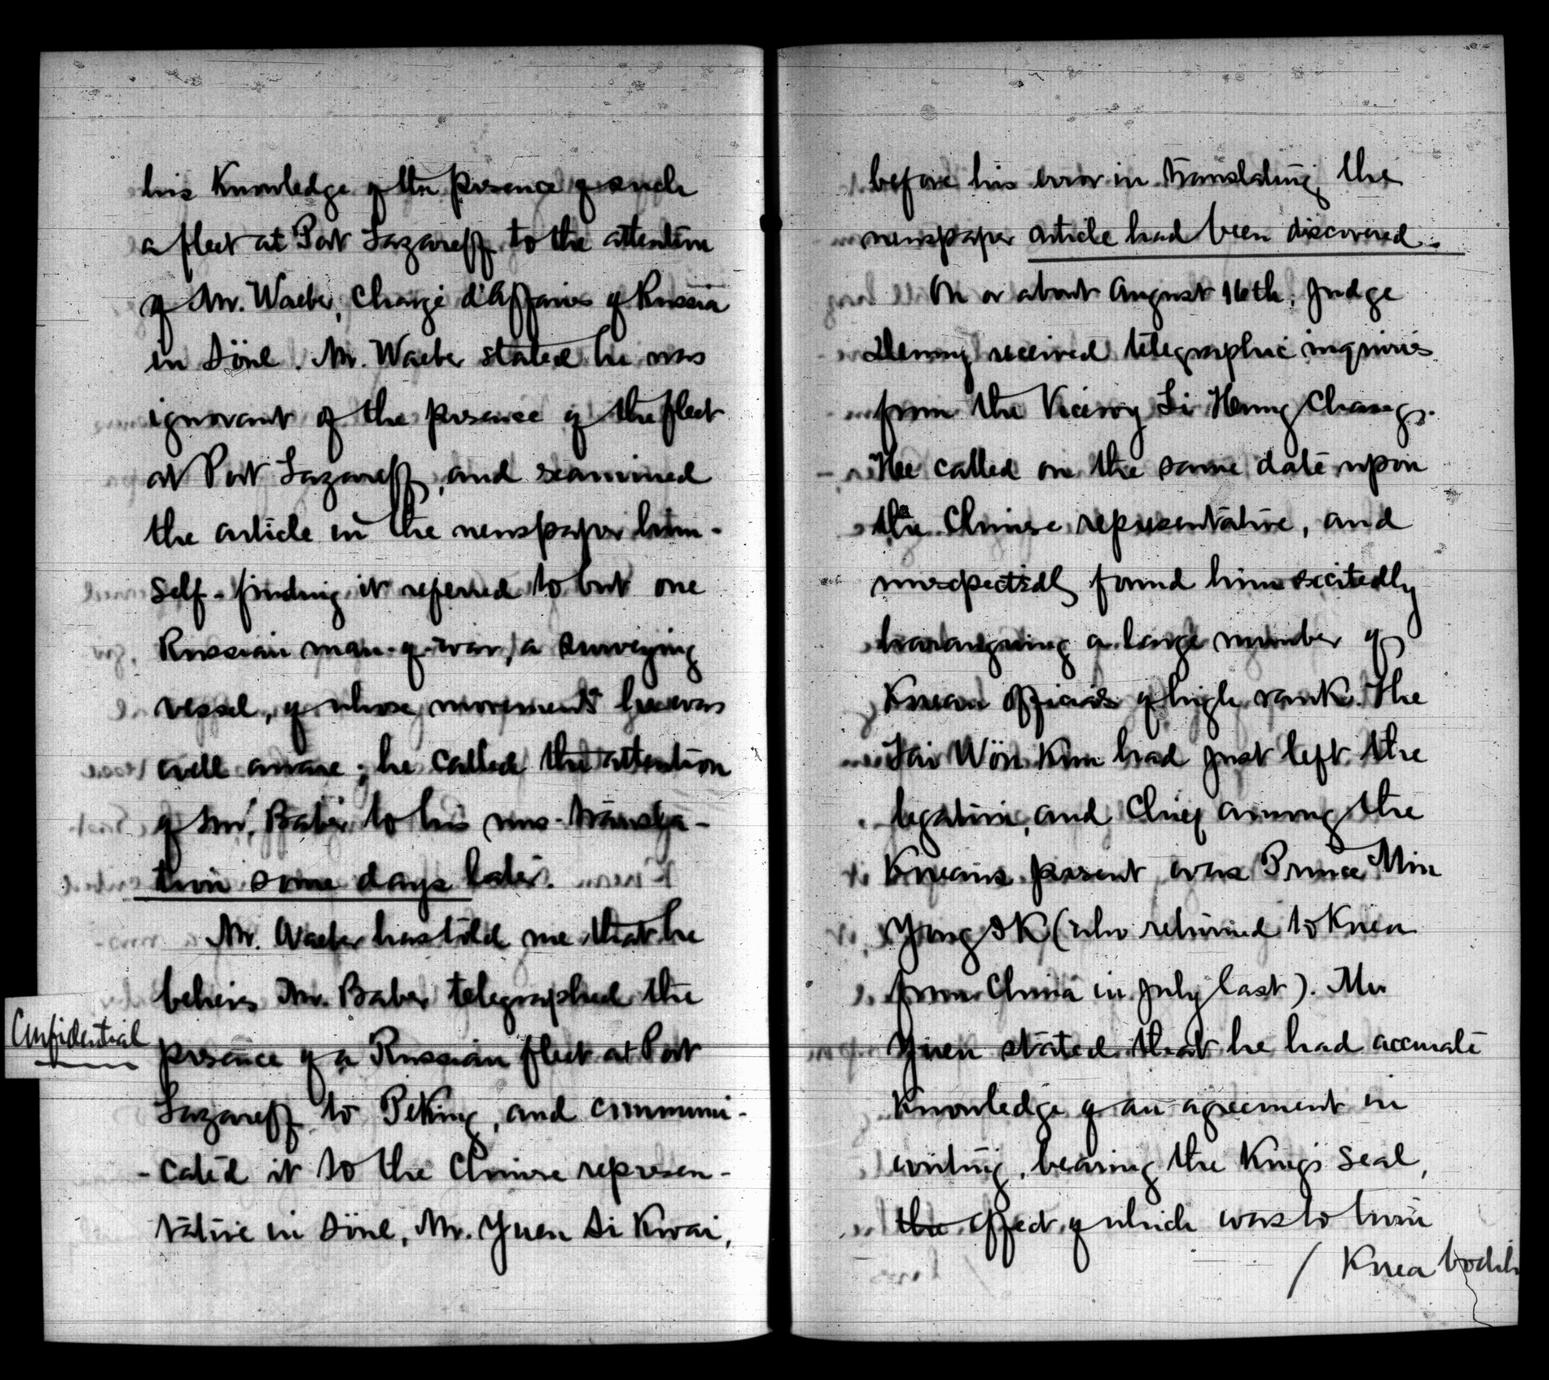 his Knowledge of the presence of such
a fleet at Port Lazareff to the attention
of Mr. Waeber, Chargé d'Affaires of Russia
in Söul. Mr. Waeber stated he was
ignorant of the presence of the fleet
at Port Lazareff, and examined
the article in the newspaper him-
self - finding it referred to but one
Russian man-of-war, a surveying
vessel, of whose movements he was
well aware; he called the attention
of Mr. Baber to his mis-transla-
tion some days later.
Mr. Waeber has told me that he
believes Mr. Baber telegraphed the
Confidential
presence of a Russian fleet at Port
Lazareff to Peking, and communi-
-cated it to the Chinese represen-
tative in Söul, Mr. Yuen Si Kwai,
before his error in translating the
newspaper article had been discovered.
On or about August 16th, Judge
Denny received telegraphic inquiries
from the Viceroy Li Hung Chang.
He called on the same date upon
the Chinese representative, and
unexpectedly found him excitedly
haranguing a large number of
Korean officials of high rank. The
Tai Wön Kun had just left the
legation, and chief among the
Koreans present was Prince Min
Yong Ik (who returned to Korea
from China in July last). Mr
Yuen stated that he had accurate
Knowledge of an agreement in
writing, bearing the King's seal,
the effect of which was to turn
/ Korea bodily